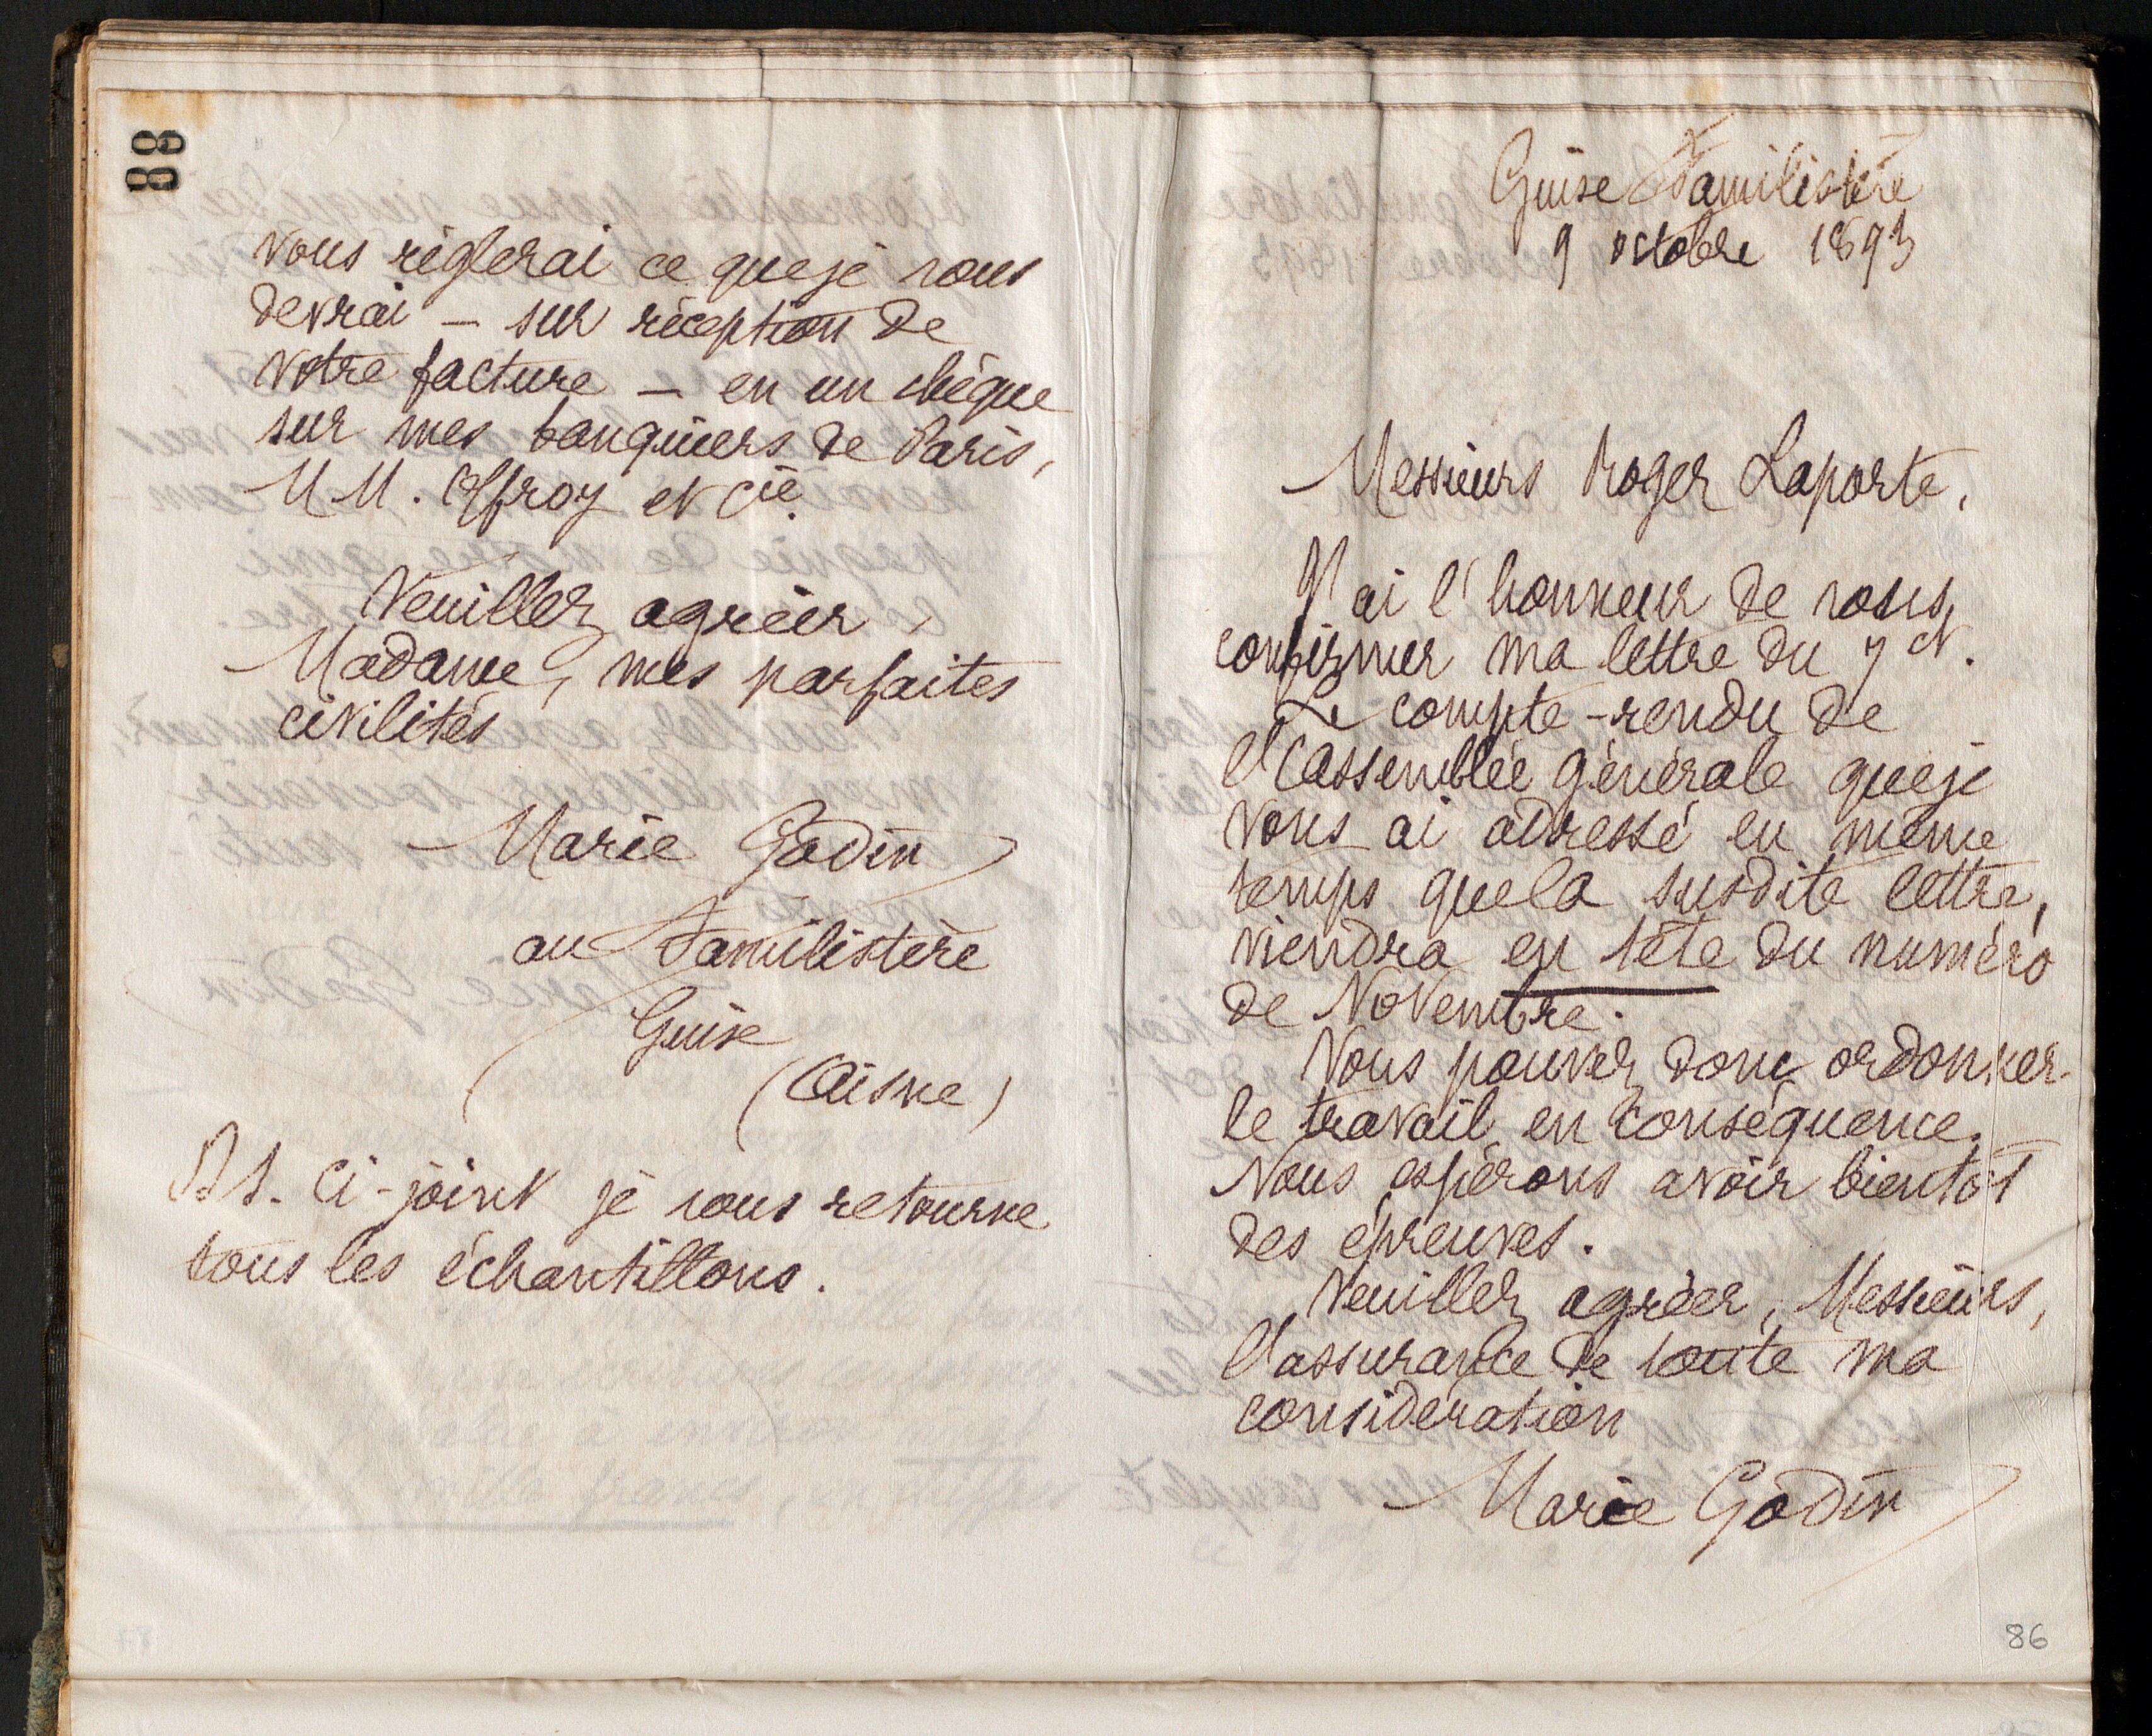 88
vous règlerai ce que je vous
devrai – sur réception de
votre facture – en un chèque
sur mes banquiers de Paris,
M.M. Offroy et Cie.
Veuillez agréer,
Madame, mes parfaites
civilités
Marie Godin
au Familistère
Guise
(Aisne)
PS. Ci-joint je vous retourne
tous les échantillons.
Guise Familistère
9 octobre 1893
Messieurs Roger Laporte,
J'ai l'honneur de vous
confirmer ma lettre du 7 ct.
Le compte-rendu de
l'Assemblée générale que je
vous ai adressé en même
temps que la susdite lettre,
viendra en tête du numéro
de Novembre.
Vous pouvez donc ordonner
le travail en conséquence.
Nous espérons avoir bientôt
des épreuves.
Veuillez agréer, Messieurs,
l'assurance de toute ma
considération
Marie Godin
86